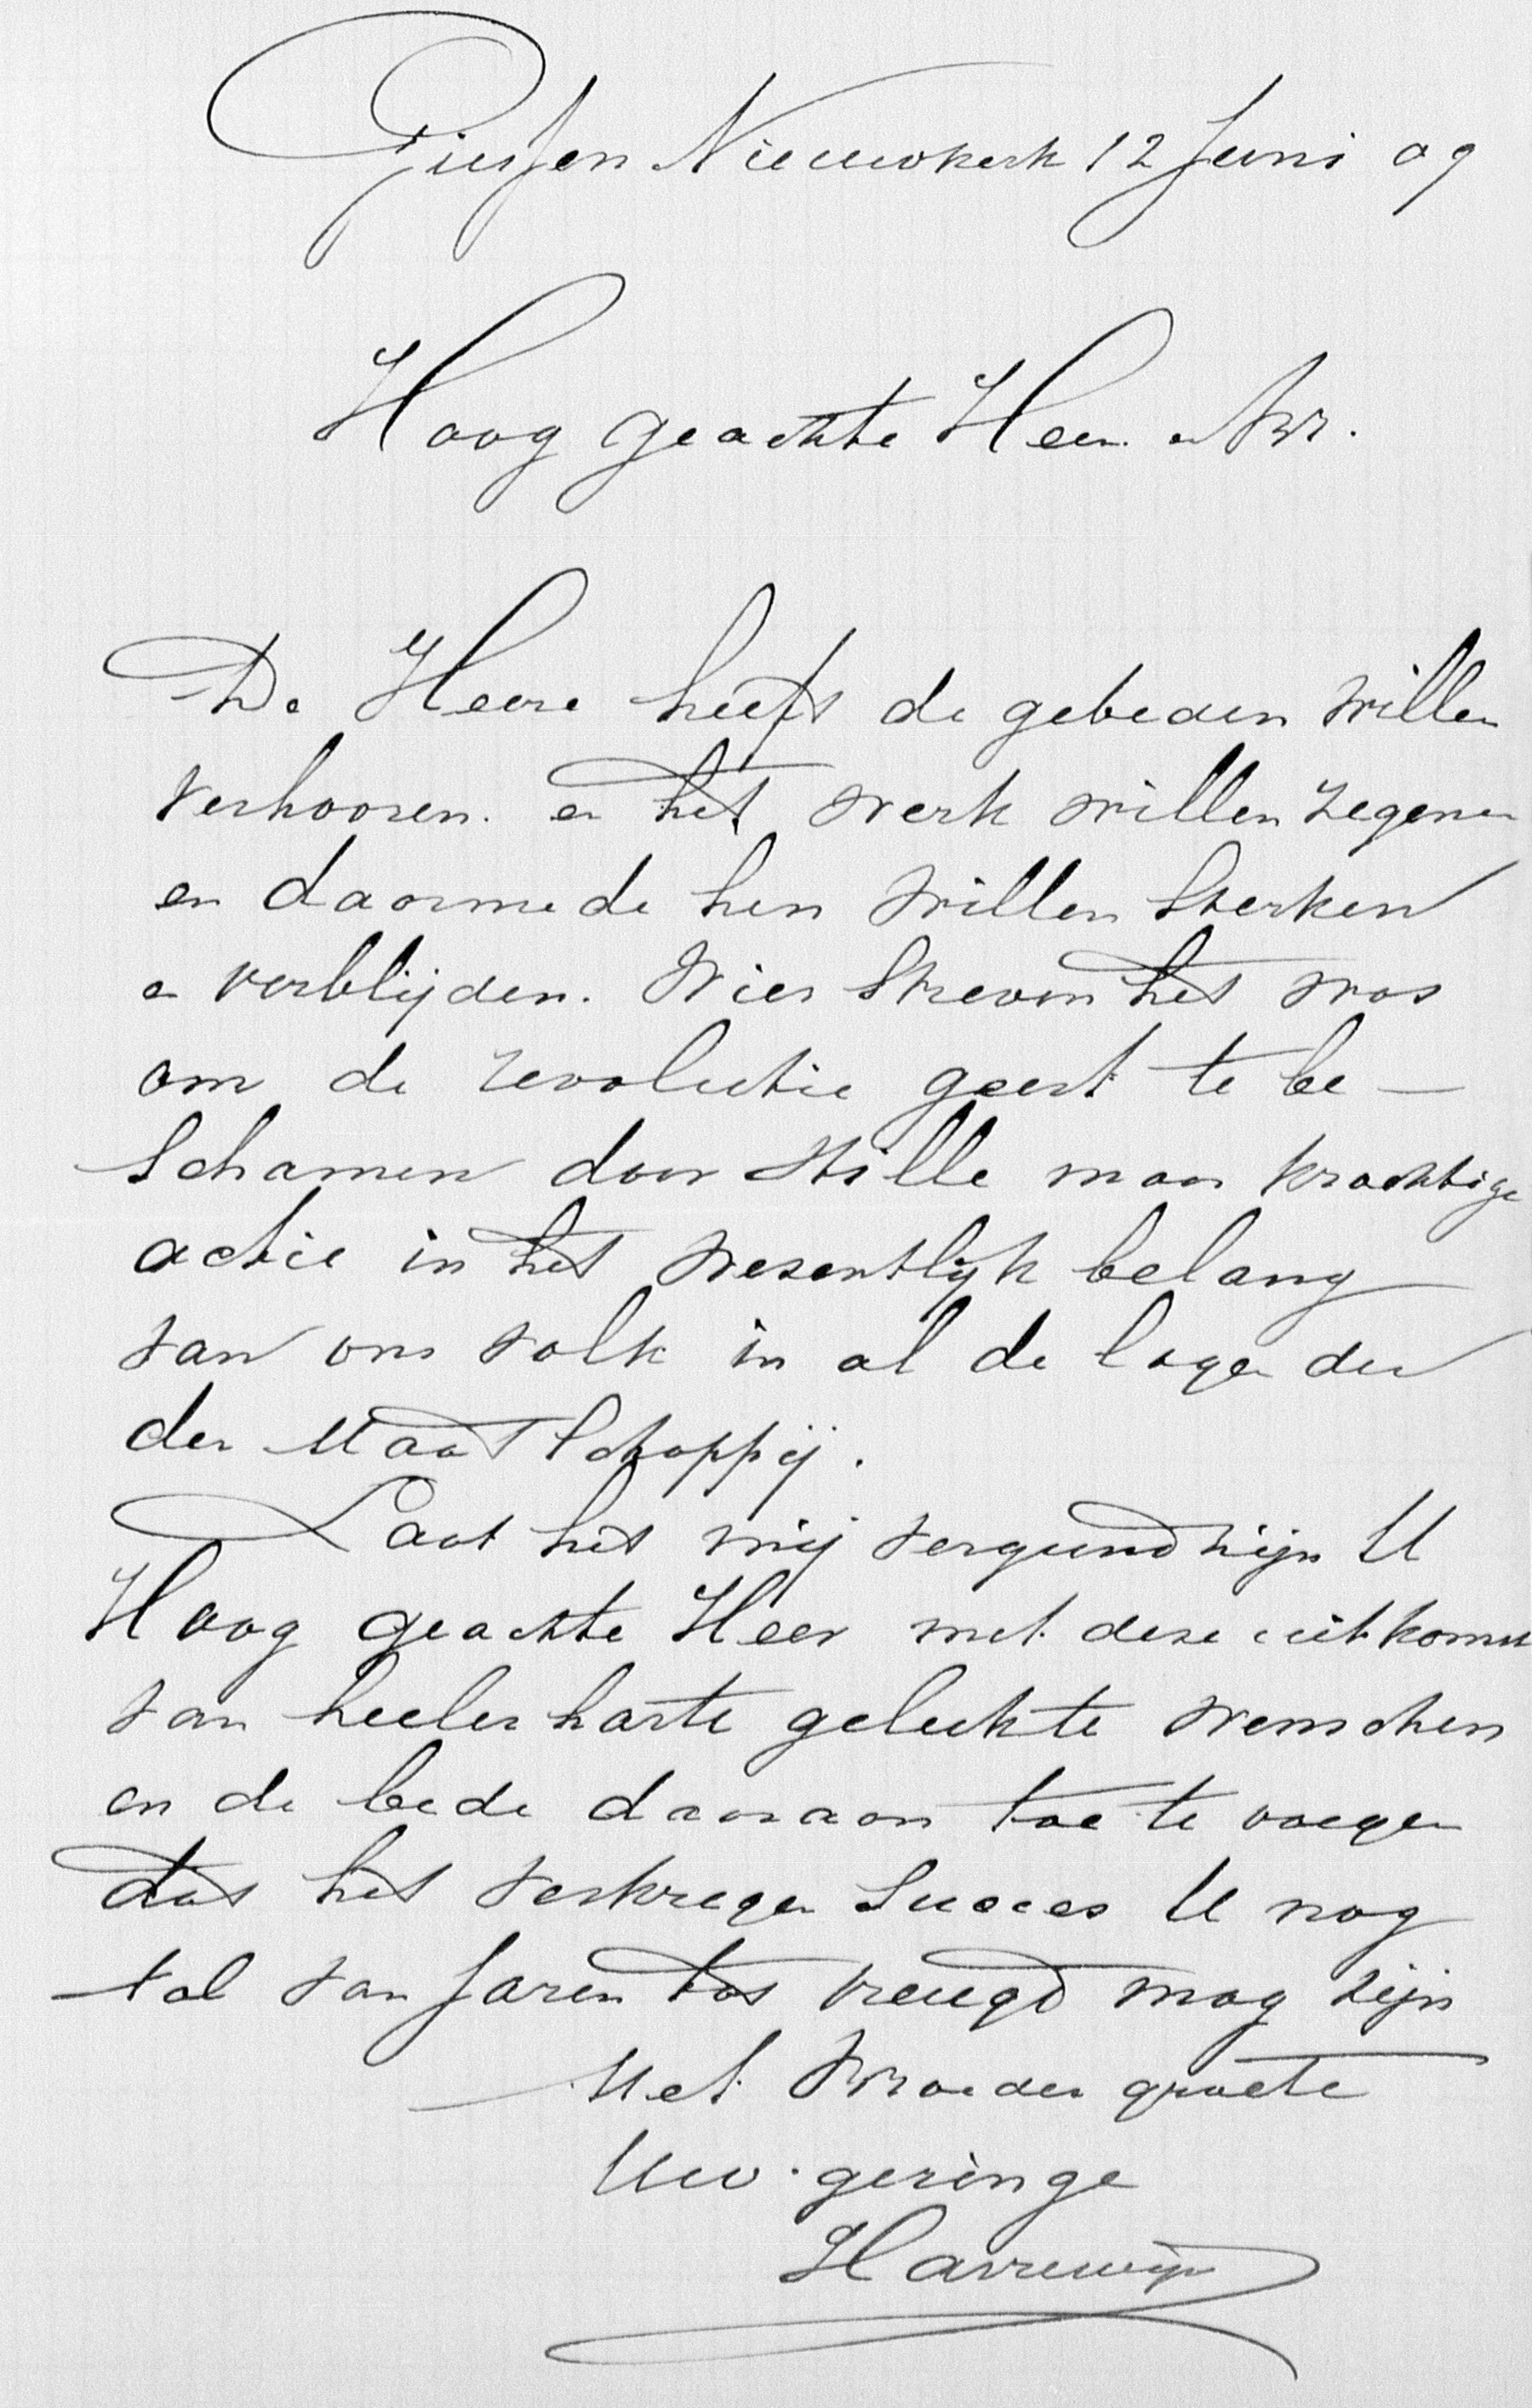 Giessen Nieuwkerk 12 Juni 09
Hoog geachte Heer en Br.
De Heere heeft de gebeden willen
verhooren. en het werk willen zegenen
en daarmede hen willen sterken
en verblijden. Wier streven het was
om de revolutie geest te be-
schamen door stille maar krachtige
actie in het wesentlijk belang
van ons volk in al de lagen der
der Maatschappij.
Laat het mij vergund zijn U
Hoog geachte Heer met deze uitkomst
van heeler harte geluk te wenschen
en de bede daaraan toe te voegen
dat het verkregen succes U nog
tal van Jaren tot vreugd mag zijn
Met broeder groete
Uw geringe
Harrewijn